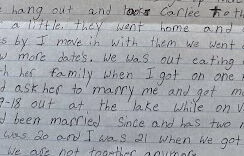 hang out and Carlee the
a little. they went home and
s by I move in with them we went
w more dates. We was out eating
h her family when I got on one
d ask her to marry me and get m
-18 out at the lake while on v
d been married Since and has two
was 20 and I was 21 when we got
we are not together anymore